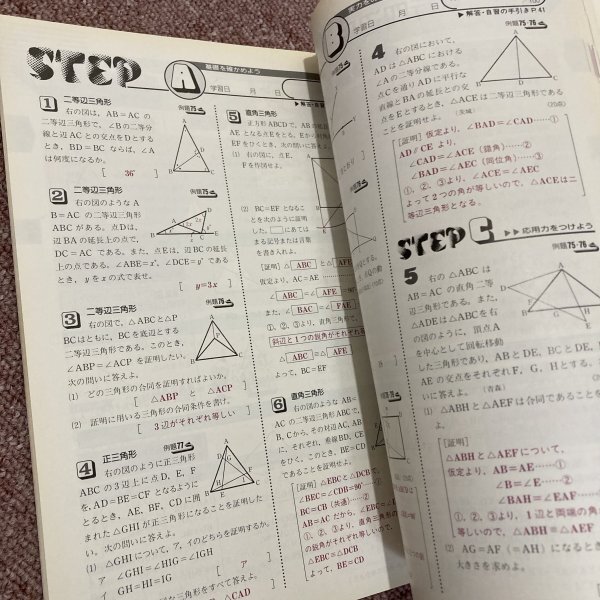 STEP A
基礎を確かめよう
学習日 月
1 二等辺三角形
例題75
右の図は，AB＝ACの
二等辺三角形で，∠Bの二等分
線と辺ACとの交点をDとする
とき，BD＝BCならば，∠A
は何度になるか。
[ 36° ]
2 二等辺三角形
例題75
右の図のような A
B＝AC の二等辺三角形
ABCがある。点Dは，
辺BAの延長上の点で，
DC＝AC である。また，点Eは，辺BCの延長
上の点である。∠ABE＝x°，∠DCE＝y°である
とき，yをxの式で表せ。
[ y＝3x ]
3 二等辺三角形
例題75
右の図で，△ABCと△P
BCはともに，BCを底辺とする
二等辺三角形である。このとき，
∠ABP＝∠ACPを証明したい。
次の問いに答えよ。
(1) どの三角形の合同を証明すればよいか。
[ △ABP と △ACP ]
(2) 証明に用いる三角形の合同条件を書け。
[ 3辺がそれぞれ等しい
4 正三角形
例題77
右の図のように正三角形
ABCの3辺上に点D，E，F
を，AD＝BE＝CFとなるように
とるとき，AE，BF，CDに囲
まれた△GHIが正三角形になることを証明した
い。次の問いに答えよ。
(1) △GHIについて，ア，イのどちらを証明するか。
ア ∠GHI＝∠HIG＝∠IGH
イ GH＝HI＝IG
[ ア ]
な三角形をすべて答えよ。
△CAD
5 直角三角形
正方形ABCDで，ABの延長
AEとなる点Eをとる。Eから対角
EFをひくとき，次の問いに答え
(1) 右の図に，点E，
Fを作図せよ。
(2) BC＝EFとなるこ
とを次のように証明し
た。□にあては
まる記号または言葉
を書き入れよ。
[証明] △ABC と△AFE
仮定より，AC＝AE
∠ABC＝∠AFE
また，∠BAC＝∠FAE
①，②，③より，直角三角形で，
斜辺と1つの鋭角がそれぞれ等
△ABC≡△AFE
よって，BC＝EF
6 直角三角形
右の図のような AB＝
ACの二等辺三角形ABCで，
B，Cから，その対辺AC，AB
に，それぞれ，垂線BD，CE
をひく。このとき，BE＝CD
であることを証明せよ。
[証明] △EBCと△DCBで，
∠BEC＝∠CDB＝90°……①
BC＝CB（共通）……②
AB＝ACだから，∠EBC＝∠
①，②，③より，直角三角形の
の鋭角がそれぞれ等しいので，
△EBC≡△DCB
よって，BE＝CD
B
学習日 月 日
▶解答・自習の手引きP.41
例題75・76
4 右の図において，
ADは△ABCにおける
∠Aの二等分線である。
点Cを通りADに平行な
直線とBAの延長との交
点をEとするとき，△ACEは二等辺三角形である
ことを証明せよ。
（茨城）
(20点)
[証明] 仮定より，∠BAD＝∠CAD……①
AD∥CEより，
∠CAD＝∠ACE（錯角）……②
∠BAD＝∠AEC（同位角）……③
①，②，③より，∠ACE＝∠AEC
よって2つの角が等しいので，△ACEは二
等辺三角形となる。
STEP C
▶▶応用力をつけよう
例題75・76
5 右の △ABC は
AB＝AC の直角二等
辺三角形である。また，
△ADEは△ABCを右
の図のように，頂点A
を中心として回転移動
した三角形であり，ABとDE，BCとDE，B
AEの交点をそれぞれF，G，Hとする。次
に答えよ。
（青森）
(1) △ABHと△AEFは合同であることを
よ。
[証明]
△ABHと△AEFについて，
仮定より，AB＝AE……①
∠B＝∠E……②
∠BAH＝∠EAF……
①，②，③より，1辺と両端の角が
等しいので，△ABH≡△AEF
(2) AG＝AF（＝AH）になるとき
大きさを求めよ。